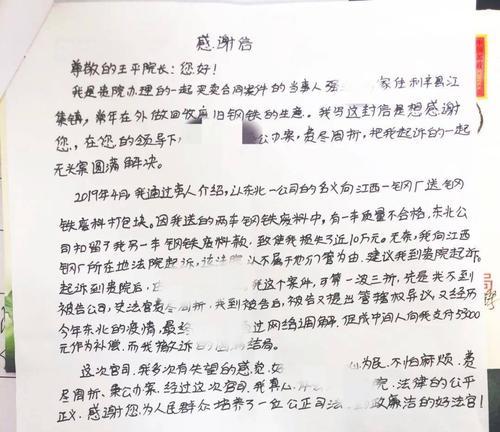 感谢信
尊敬的王平院长：您好！
我是贵院办理的一起买卖合同案件的当事人强 家住利辛县江
集镇，常年在外做回收废旧钢铁的生意。我写这封信是想感谢
您，在您的领导下， 公办案，费尽周折，把我起诉的一起
无头案圆满解决。
2019年4月我通过别人介绍，以东北一公司的名义向江西一钢厂送钢
铁废料打包块。因我送的两车钢铁废料中，有一车质量不合格，东北公
司扣留了我另一车钢铁废料款，致使我损失了近10万元。无奈，我向江西
钢厂所在地法院起诉，该法院认不属于他们管为由，建议我到贵院起诉。
起诉到贵院后， 我这个案件，可算一波三折，先是找不到
被告公司，史法官费尽周折，找到被告后，被告又提出管辖权异议，又经历
今年东北的疫情，最终 过网络调解，促成中间人向我支付53000
元作为补偿，而我撤诉的圆满结局。
这次官司，我多次有失望的感觉，好 为民、不怕麻烦、费
尽周折、秉公办案，经过这次官司，我真心 院，法律的公平
正义，感谢您为人民群众培养了一位公正司法、 政廉洁的好法官！